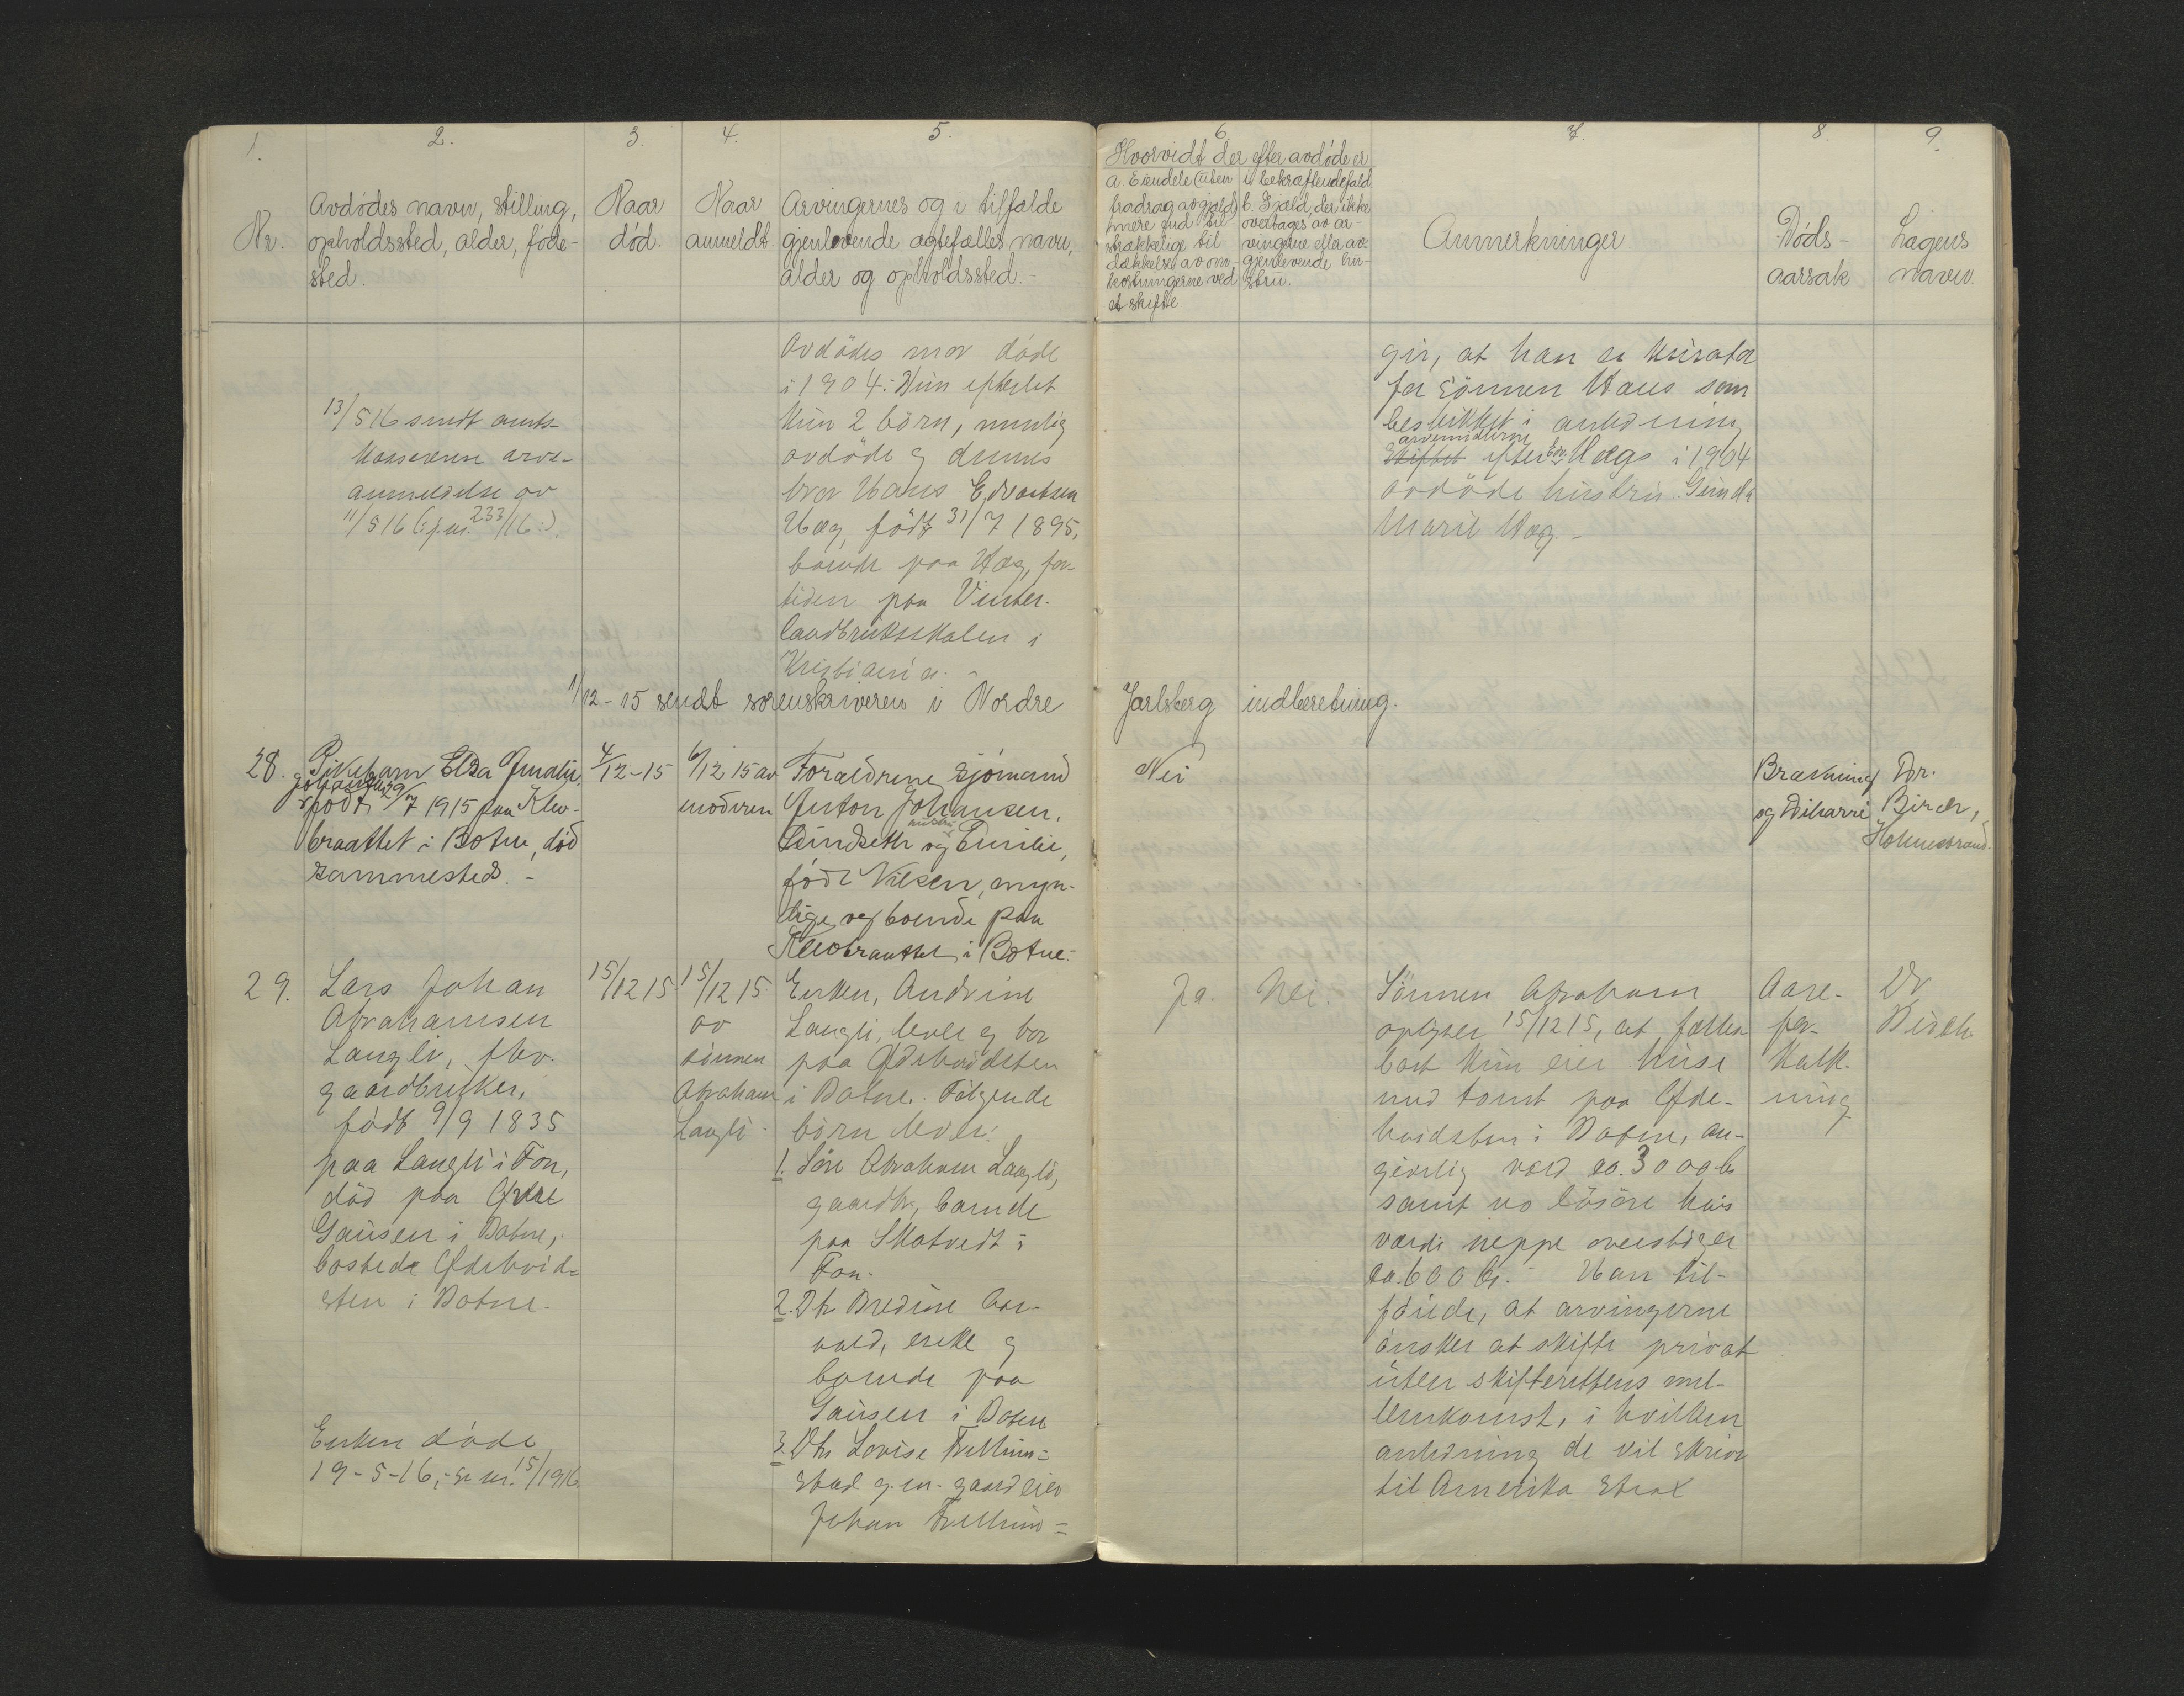 1.
2.
3.
4.
5.
6.
7.
8.
9.
Nr.
Avdödes navn, stilling,
opholdssted, alder, föde-
sted.
Naar
död.
Naar
anmeldt.
Arvingernes og i tilfælde
gjenlevende ægtefælles navn,
alder og opholdssted.
Hvorvidt der efter avdöde er
a. Eiendele (uten
fradrag av gjæld)
mere end til-
strækkelige til
dækkelse av om-
kostningerne ved
et skifte.
i bekræftendefald
b. Gjæld, der ikke
overtages av ar-
vingerne eller av
gjenlevende hu-
stru.
Anmerkninger
Döds-
aarsak
Lægens
navn.
13/5 16 sendt amts-
kassereren arve-
anmeldelse av
11/5 16 (: j.nr. 233/16 :).
Avdödes mor döde
i 1904. Hun efterlot
kun 2 börn, nemlig
avdöde og dennes
bror Hans Edvartsen
Hæg, födt 31/7 1895,
boende paa Hæg, for-
tiden paa Vinter-
landbruksskolen i
Kristiania. -
gir, at han er kurator
for sönnen Hans som
beskikket i anledning
arvemidlerne
Skiftet efter Edv. Hægs i 1904
avdöde hustru Gunda
Marie Hæg. -
1/12 - 15 sendt sorenskriveren i Nordre Jarlsberg indberetning.
28.
Pikebarn Elsa Amalie
Johansen
födt 29/7 1915 paa Klev-
braattet i Botne, död
sammesteds. -
4/12 - 15
6/12 15 av
moderen
Forældrene sjömand
Anton Johansen,
hustru
Lindseth og Emilie,
född Nilsen, myn-
dige, og boende paa
Klevbraattet i Botne. -
Nei
Brækning
og Diharré
Dr.
Birch,
Holmestrand.
29.
Lars Johan
Abrahamsen
Langli, fhv.
gaardbruker,
födt 9/9 1835
paa Langli i Fon,
död paa Øvre
Gausen i Botne,
bostede Ødehvid-
sten i Botne.
15/12 15
15/12 15
av
sönnen
Abraham
Langli -
Enken, Andrine
Langli, lever og bor
paa Ødehvidsten
i Botne. Fölgende
börn lever:
1. Sön Abraham Langli,
gaardbr., boende
paa Skotvedt i
Fon.
2. Dtr. Bredine
enke og
boende paa
Gausen i Botne
3. Dtr. Lovise
stad g. m. gaardeier
Johan
Ja.
Nei.
Sönnen Abraham
oplyser 15/12 15, at fælles-
boet kun eier huse
med tomt paa Øde-
hvidsten i Botne, an-
givelig værd ca. 3000 kr
samt no lösöre hvis
værdi neppe overstiger
ca. 600 kr. - Han til-
föiede, at arvingerne
önsker at skifte privat
uten skifterettens mel-
lemkomst, i hvilken
anledning de vil skrive
til Amerika strax
Aare-
for-
kalk-
ning
Dr
Birch.
Enken döde
19-5-16, - se nr. 15/1916.